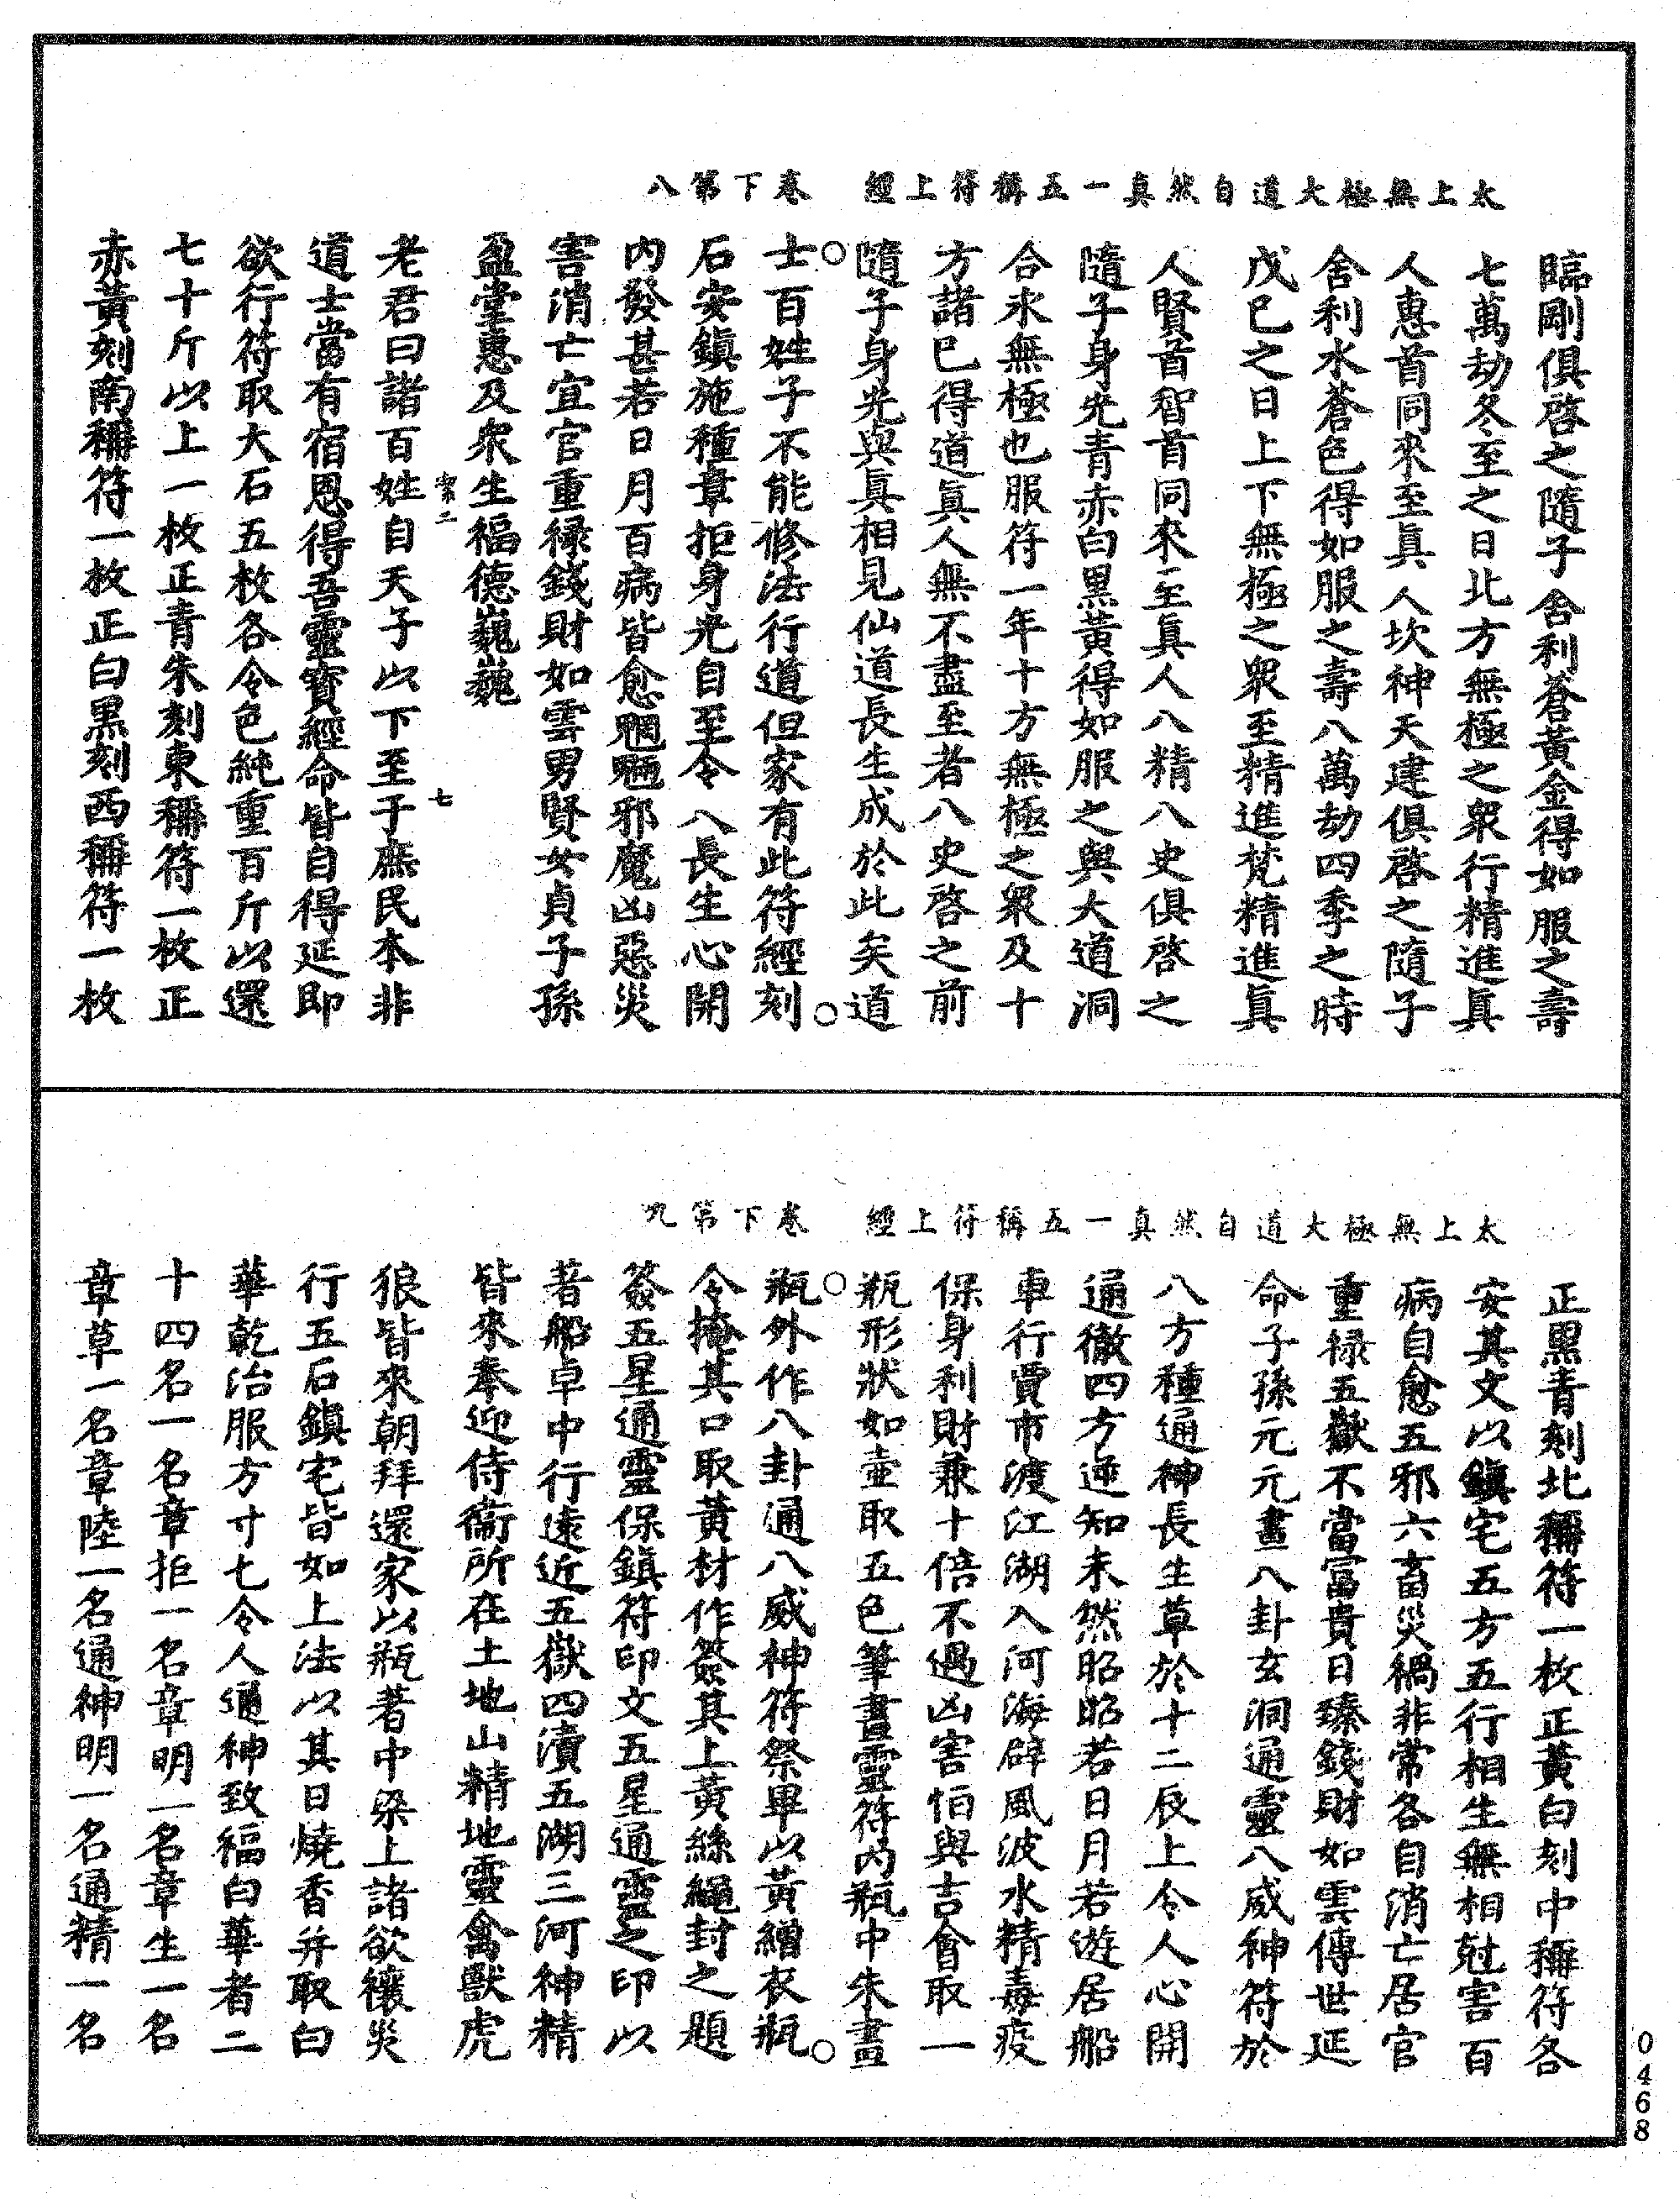 太上無極大道自然真一五稱符上經　卷下第八
臨剛俱啓之隨子舍利蒼黃金得如服之壽
七萬劫冬至之日北方無極之衆行精進眞
人惠首同來至眞人坎神天建俱啓之隨子
舍利水蒼色得如服之壽八萬劫四季之時
戊巳之日上下無極之衆至精進梵精進眞
人賢首智首同來至眞人八精八史俱啓之
隨子身光青赤白黑黃得如服之與大道洞
合永無極也服符一年十方無極之衆及十
方諸已得道眞人無不盡至者八史啓之前
隨子身光與眞相見仙道長生成於此矣道
士百姓子不能修法行道但家有此符經刻
石安鎮施種章拒身光自至令八長生心開
内發甚若日月百病皆愈魍魎邪魔凶惡災
害消亡宜官重祿錢財如雲男賢女貞子孫
盈堂惠及衆生福德巍巍
老君曰諸百姓自天子以下至于庶民本非
道士當有宿恩得吾靈寶經命皆自得延即
欲行符取大石五枚各令色純重百斤以還
七十斤以上一枚正青朱刻東稱符一枚正
赤黃刻南稱符一枚正白黑刻西稱符一枚
七
太上無極大道自然真一五稱符上經　卷下第九
正黑青刻北稱符一枚正黃白刻中稱符各
安其文以鎮宅五方五行相生無相尅害百
病自愈五邪六畜災禍非常各自消亡居官
重祿五嶽不當冨貴日臻錢財如雲傳世延
命子孫元元畫八卦玄洞通靈八威神符於
八方種通神長生草於十二辰上令人心開
通徹四方逆知未然昭昭若日月若遊居船
車行賈市渡江湖入河海辟風波水精毒疫
保身利財兼十倍不遇凶害怕與吉會取一
瓶形狀如壺取五色筆畫靈符内瓶中朱畫
瓶外作八卦通八威神符祭畢以黃繒衣瓶
令掩其口取黃材作簽其上黃絲繩封之題
簽五星通靈保鎮符印文五星通靈之印以
著船卓中行遠近五嶽四瀆五湖三河神精
皆來奉迎侍衞所在土地山精地靈禽獸虎
狼皆來朝拜還家以瓶著中梁上諸欲禳災
行五石鎮宅皆如上法以其日燒香并取白
華乾治服方寸七令人通神致福白華者二
十四名一名章拒一名章明一名章生一名
章草一名章陸一名通神明一名通精一名
0468